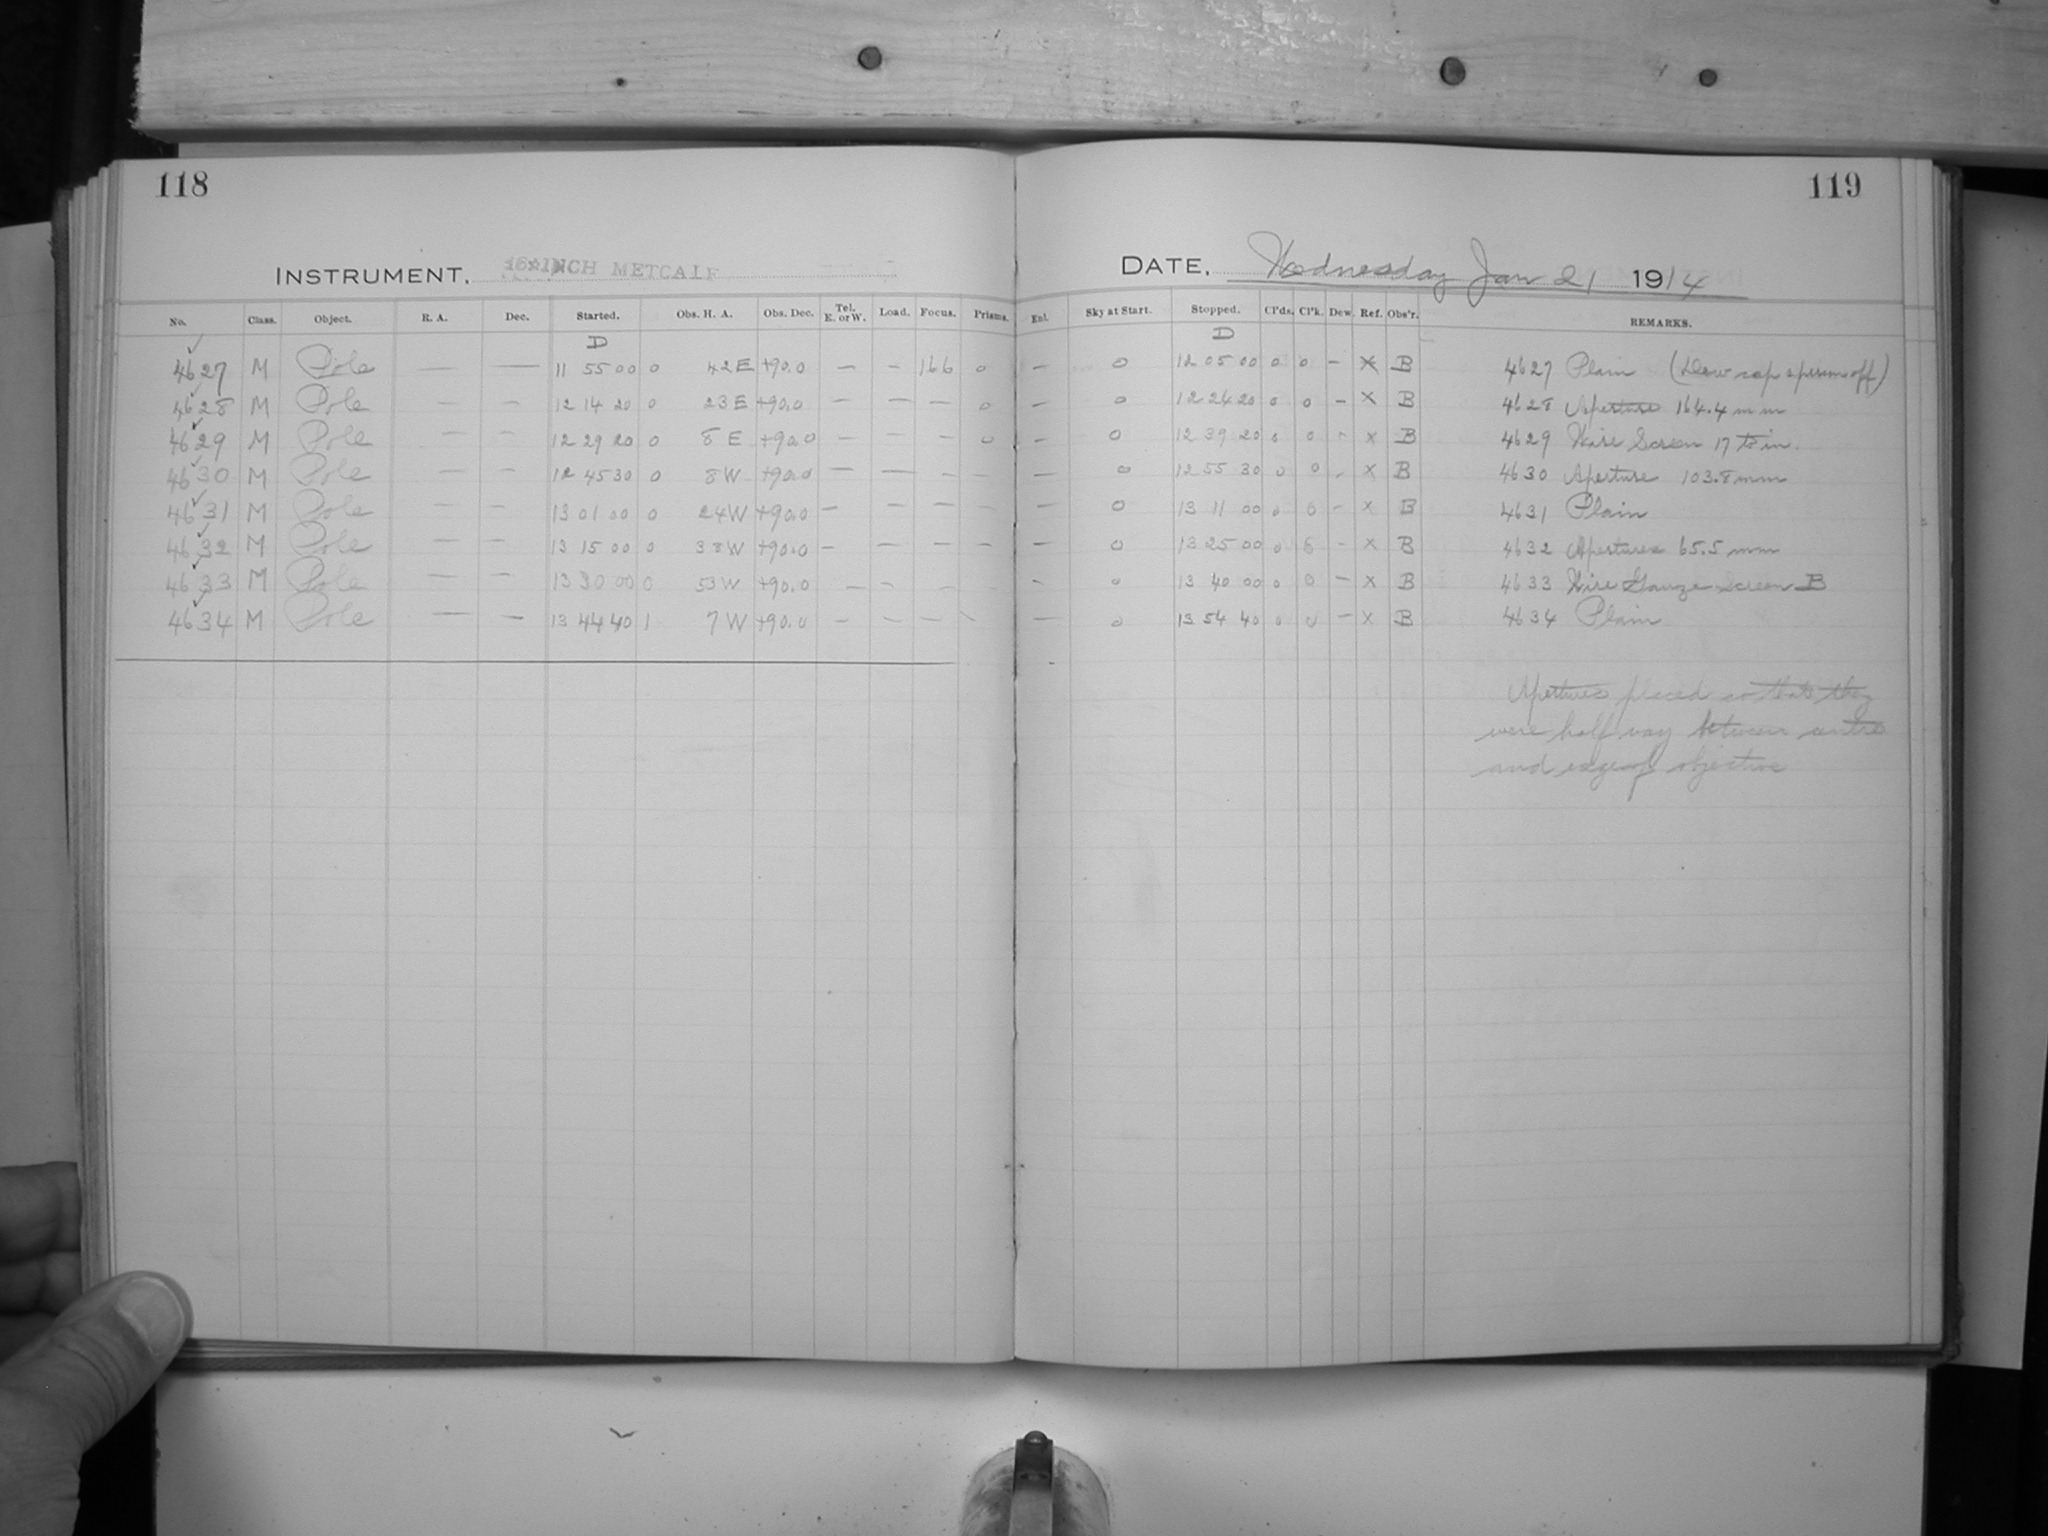 118
119
INSTRUMENT, 16-INCH METCALF
DATE, Wednesday Jan 21 1914
No. Class. Object. R. A. Dec. Started. Obs. H. A. Obs. Dec. Tel. E. or W. Load. Focus. Prisms. Enl. Sky at Start. Stopped. Cl'ds. Cl'k. Dew. Ref. Obs'r. REMARKS.
D D
4627 M Pole — — 11 55 00 0 42 E +90.0 — — 166 0 — 0 12 05 00 0 0 — x B 4627 Plain (Dew cap & prism off)
4628 M Pole — — 12 14 20 0 23 E +90.0 — — — 0 — 0 12 24 20 0 0 — x B 4628 Aperture 164.4 mm
4629 M Pole — — 12 29 20 0 8 E +90.0 — — — 0 — 0 12 39 20 0 0 — x B 4629 Wire Screen 17 to in.
4630 M Pole — — 12 45 30 0 8 W +90.0 — — — — — 0 12 55 30 0 0 — x B 4630 Aperture 103.8 mm
4631 M Pole — — 13 01 00 0 24 W +90.0 — — — — — 0 13 11 00 0 0 — x B 4631 Plain
4632 M Pole — — 13 15 00 0 38 W +90.0 — — — — — 0 13 25 00 0 0 — x B 4632 Apertures 65.5 mm
4633 M Pole — — 13 30 00 0 53 W +90.0 — — — — — 0 13 40 00 0 0 — x B 4633 Wire Gauze Screen B
4634 M Pole — — 13 44 40 1 7 W +90.0 — — — — — 0 13 54 40 0 0 — x B 4634 Plain
Apertures placed so that they
were half way between centre
and edge of objective